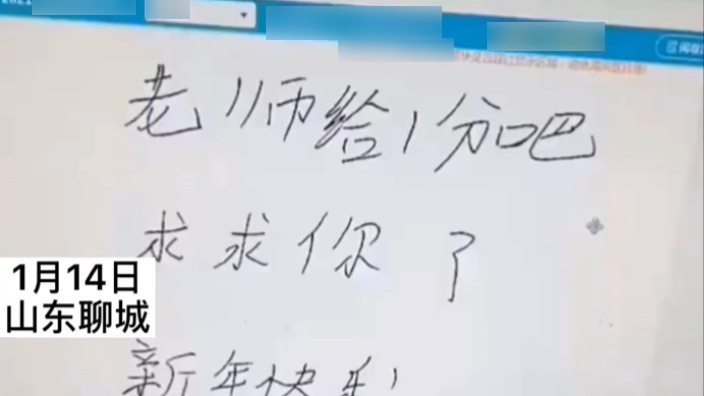 2021
老师给1分吧
求求你了
1月14日
山东聊城
新年快乐